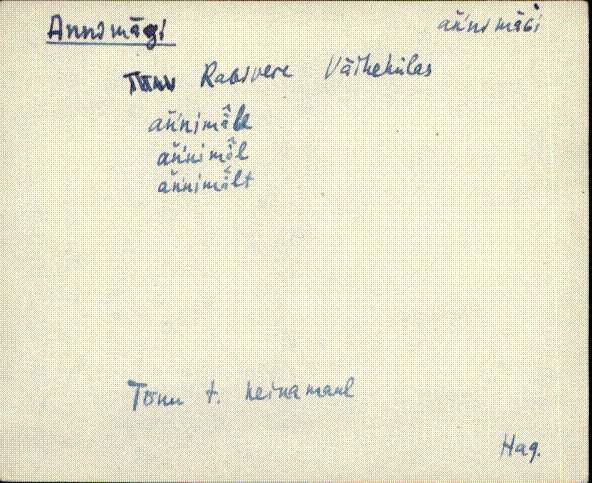 Annimägi
ańnimäɢi
Raasvere Väikekülas
ańnimä̂lle
ańnimä̂l
ańnimä̂lt
Tõnu t. heinamaal
Hag.